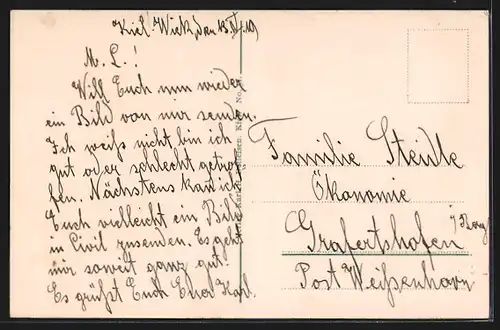 Kiel-Wick, den 13.V.19
M. L.!
Will Euch nun wieder
ein Bild von mir senden.
Ich weiß nicht bin ich
gut oder schlecht getrof-
fen. Nächstens kann ich
Euch vielleicht ein Bild
in Civil zusenden. Es geht
mir soweit ganz gut.
Es grüßt Euch Euer Karl.
Familie Steidle
Ökonomie
Grafertshofen
Post Weißenhorn